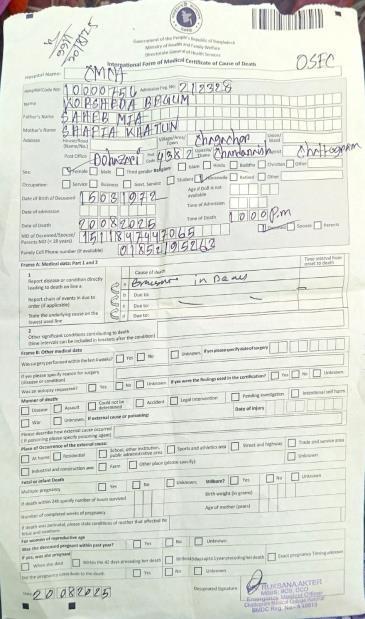 Government of the People's Republic of Bangladesh
Ministry of Health and Family Welfare
Directorate General of Health Services
International Form of Medical Certificate of Cause of Death
OSEC
Hospital Name: CMCH
Hospital Code No: 10000756 Admission Reg. No: 212328
Name KORSHEDA BEGUM
Father's Name SAHEB MIA
Mother's Name SHAFIA KHATUN
Address House/Road (Name/No.) Village/Area/Town Chagachar Union/Ward
Post Office Dohazari Post Code 4382 Upazila/Thana Chandanaish District Chattogram
Sex: Female Male Third gender Religion: Islam Hindu Buddha Christian Other
Occupation: Service Business Govt. Service Student Housewife Retired Other
Date of Birth of Deceased 15031972 Age if DoB is not available
Date of admission Time of Admission
Date of Death 20082025 Time of Death 1000Pm
NID of Deceased/Spouse/Parents NID (< 18 years) Deceased Spouse Parents
Family Cell Phone number (if available)
Frame A: Medical data: Part 1 and 2
Time interval from onset to death
1 Cause of death
Report disease or condition directly leading to death on line a a Brought in Dead
Report chain of events in due to order (if applicable) b Due to:
State the underlying cause on the lowest used line c Due to:
d Due to:
2 Other significant conditions contributing to death
(time intervals can be included in brackets after the condition)
Frame B: Other medical data
Was surgery performed within the last 4 weeks? Yes No Unknown If yes please specify date of surgery
If yes please specify reason for surgery (disease or condition)
Was an autopsy requested? Yes No Unknown If yes were the findings used in the certification? Yes No Unknown
Manner of death
Disease Assault Could not be determined Accident Legal intervention Pending investigation Intentional self harm
War Unknown If external cause or poisoning: Date of injury
Please describe how external cause occurred
(If poisoning please specify poisoning agent)
Place of Occurrence of the external cause:
At home Residential School, other institution, public administrative area Sports and athletics area Street and highway Trade and service area
Industrial and construction area Farm Other place (please specify) Unknown
Fetal or infant Death
Multiple pregnancy Yes No Unknown Stillborn? Yes No Unknown
If death within 24h specify number of hours survived Birth weight (in grams)
Number of completed weeks of pregnancy Age of mother (years)
If death was perinatal, please state conditions of mother that affected the fetus and newborn
For women of reproductive age
Was the deceased pregnant within past year? Yes No Unknown
If yes, was she pregnant:
When she died Within the 42 days preceding her death Exact pregnancy Timing unknown
Did the pregnancy contribute to the death Yes No Unknown
Date 20082025 Designated Signature
RUKSANA AKTER
MBBS, BCS, CCD
Emergency Medical Officer